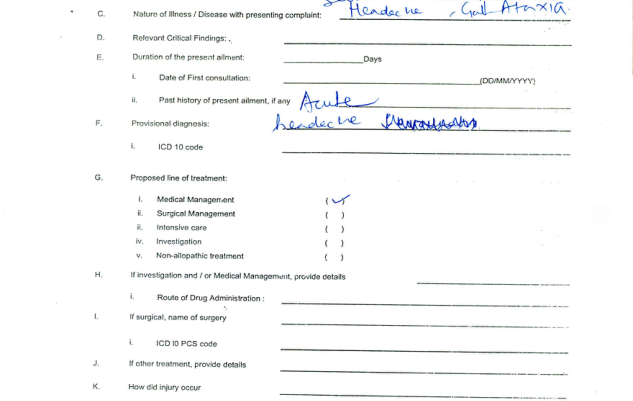 C. Nature of Illness / Disease with presenting complaint: Headache, Gait Ataxia.
D. Relevant Critical Findings:
E. Duration of the present ailment: Days
i. Date of First consultation: (DD/MM/YYYY)
ii. Past history of present ailment, if any Acute
F. Provisional diagnosis: headache
i. ICD 10 code
G. Proposed line of treatment:
i. Medical Management (✓)
ii. Surgical Management ( )
ii. Intensive care ( )
iv. Investigation ( )
v. Non-allopathic treatment ( )
H. If investigation and / or Medical Management, provide details
i. Route of Drug Administration :
I. If surgical, name of surgery
i. ICD I0 PCS code
J. If other treatment, provide details
K. How did injury occur